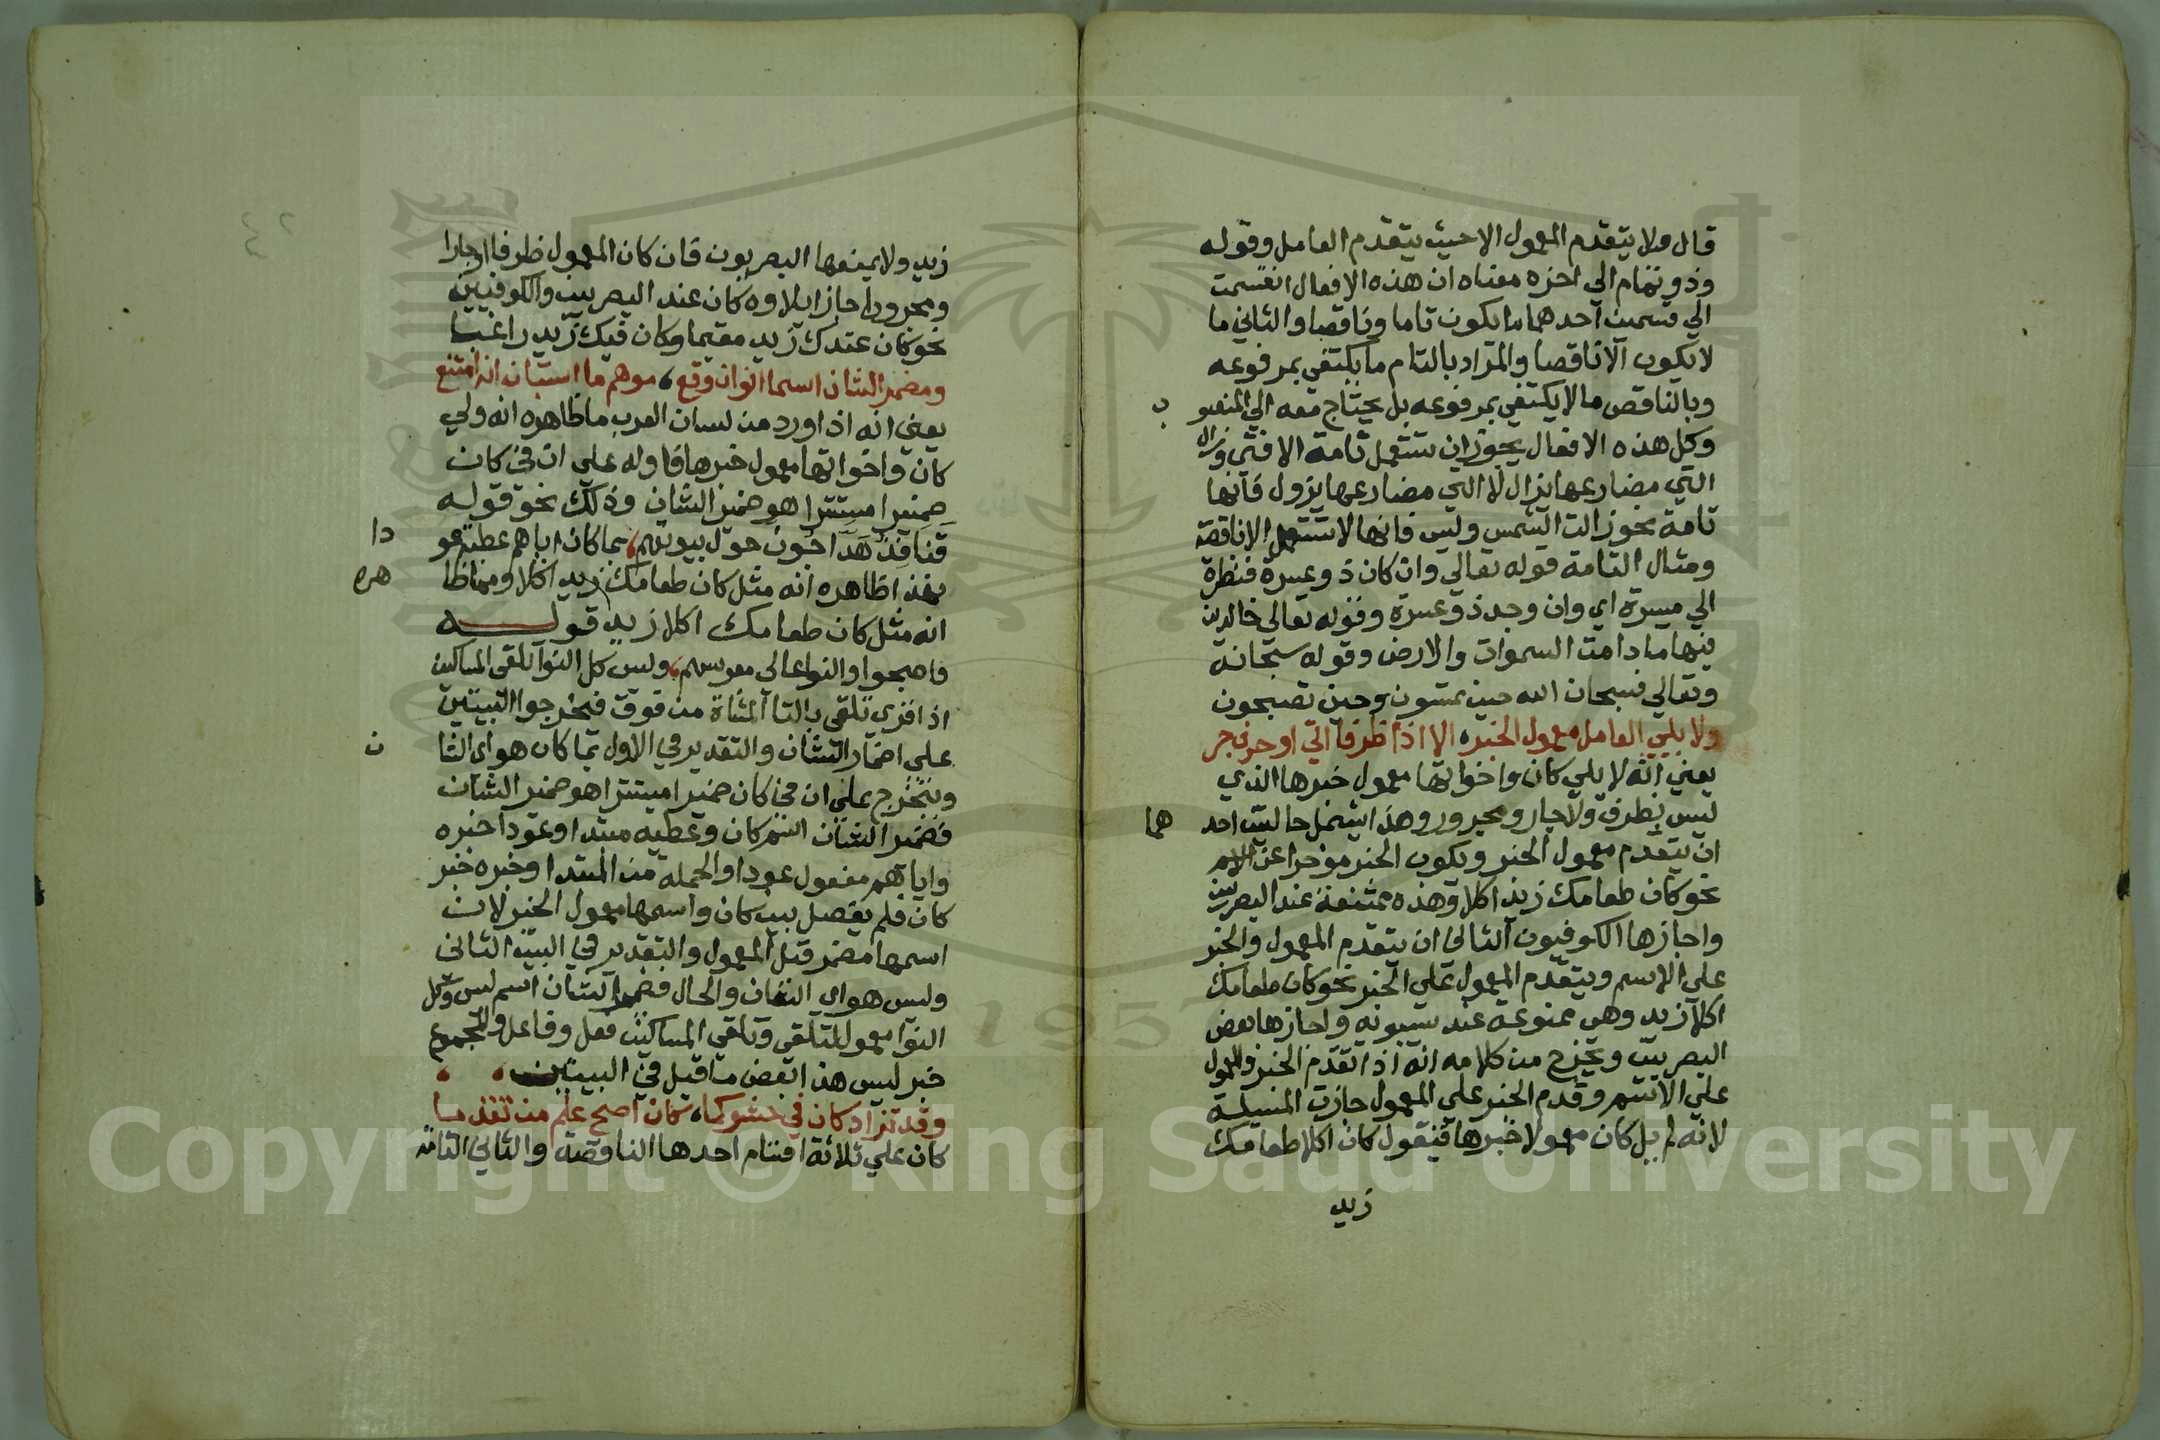 قال ولا يتقدم المعمول الا حيث يتقدم العامل وقوله
وذو تمام الي اخره معناه ان هذه الافعال انقسمت
الي قسمين احدهما ما يكون تاما وناقصا والثاني ما
لا يكون الا ناقصا والمراد بالتام ما يكتفي بمرفوعه
وبالناقص ما لا يكتفي بمرفوعه بل يحتاج معه الي المنصو
ب
وكل هذه الافعال يجوز ان تستعمل تامة الا فتي وزال
التي مضارعها يزال لا التي مضارعها يزول فانها
تامة نحو زالت الشمس وليس فانها لا تستعمل الا ناقصة
ومثال التامة قوله تعالي وان كان ذو عسرة فنظرة
الي ميسرة اي وان وجد ذو عسرة وقوله تعالي خالدين
فيها ما دامت السموات والارض وقوله سبحانه
وتعالي فسبحان الله حين تمسون وحين تصبحون
ولا يلي العامل معمول الخبر، الا اذا ظرفا اتي او حرف جر
يعني انه لا يلي كان واخواتها معمول خبرها الذي
ليس بظرف ولا جار ومجرور وهذا يشمل حالين احد
هما
ان يتقدم معمول الخبر ويكون الخبر موخرا عن الاسم
نحو كان طعامك زيد اكلا وهذه ممتنعة عند البصريين
واجازها الكوفيون الثاني ان يتقدم المعمول والخبر
علي الاسم ويتقدم المعمول علي الخبر نحو كان طعامك
اكلا زيد وهي ممنوعة عند سيبويه واجازها بعض
البصريين ويخرج من كلامه انه اذا تقدم الخبر والمعمول
علي الاسم وقدم الخبر علي المعمول جازت المسيلة
لانه لم يل كان معمولا خبرها فنقول كان اكلا طعامك
زيد
زيد ولا يمنعها البصريون فان كان المعمول ظرفا او جارا
ومجرورا جاز ايلاوه كان عند البصريين والكوفيين
نحو كان عندك زيد مقيما وكان فيك زيد راغبا
ومضمر الشان اسما انوان وقع، موهم ما استبان انه امتنع
يعني انه اذا ورد من لسان العرب ما ظاهره انه ولي
كان واخواتها معمول خبرها فاوله علي ان في كان
ضميرا مستترا هو ضمير الشان وذلك نحو قوله
قنافذ هداجون حول بيوتهم، بما كان اياهم عطية عو
دا
فهذا ظاهره انه مثل كان طعامك زيد اكلا ومما ظا
هره
انه مثل كان طعامك اكلا زيد قولـــه
فاصبحوا والنوا عالي معرسهم، وليس كل النوا تلقي المساكين
اذا قري تلقي بالتا المثناة من فوق فيخرجوا البيتين
علي اضمار الشان والتقدير في الاول بما كان هو اي الشا
ن
ويتخرج علي ان في كان ضميرا مستترا هو ضمير الشان
فضمير الشان اسم كان وعطيه مبتدا وعودا خبره
واياهم مفعول عودا والجملة من المبتدا وخبره خبر
كان فلم يفصل بين كان واسمها معمول الخبر لان
اسمها مضمر قبل المعمول والتقدير في البيت الثاني
وليس هو اي الشان والحال فضمير الشان اسم ليس وكل
النوا معمول لتلقي وتلقي المساكين فعل وفاعل والمجموع
خبر ليس هذا بعض ما قيل في البيتين
وقد تزاد كان في حشو كما، كان اصح علم من تقدما
كان علي ثلاثة اقسام احدها الناقصة والثاني التامه
Copyright © King Saud University
1957